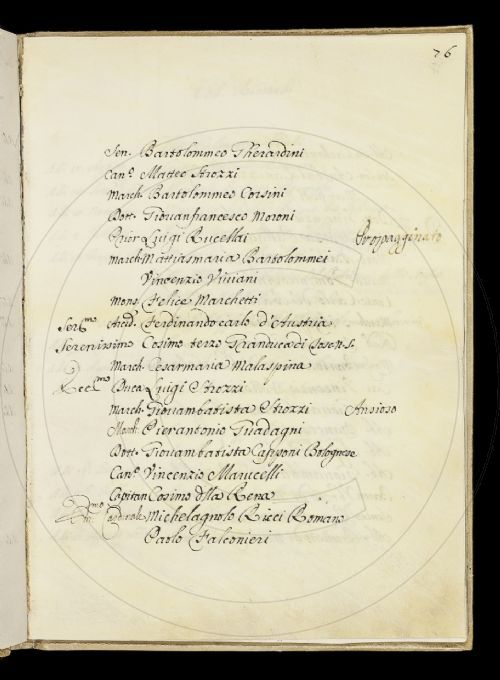 76
Sen. Bartolommeo Gherardini
Can.º Matteo Strozzi
March. Bartolommeo Corsini
Dott. Giovanfrancesco Moroni
Prior Luigi Rucellai Propagginato
March. Mattiasmaria Bartolommei
Vincenzio Viviani
Mons. Felice Marchetti
Ser.mo Arcid. Ferdinandocarlo d'Austria
Serenissimo Cosimo terzo Granduca di Tosc.
March. Cesarmaria Malaspina
Ecc.mo Duca Luigi Strozzi
March. Giovambatista Strozzi Ansioso
March. Pierantonio Guadagni
Dott. Giovambatista Capponi Bolognese
Can.º Vincenzio Marucelli
Capitan Cosimo della Rena
Em.mo Cardinale Michelagnolo Ricci Romano
Paolo Falconieri